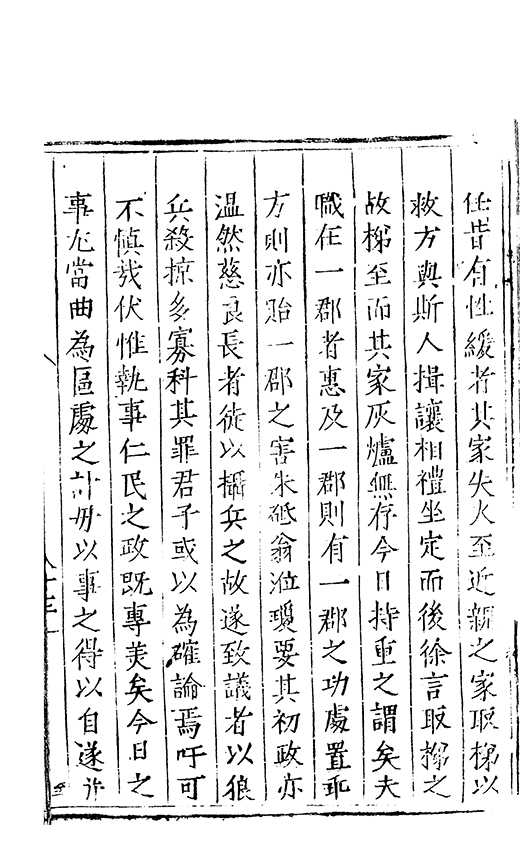 任昔有性緩者其家失火至近親之家取梯以
救方與斯人揖讓相禮坐定而後徐言取梯之
故梯至而其家灰爐無存今日持重之謂矣夫
職在一郡者惠及一郡則有一郡之功處置乖
方則亦貽一郡之害朱砥翁涖瓊要其初政亦
温然慈良長者徒以攝兵之故遂致議者以狼
兵殺掠多寡科其罪君子或以為確論焉吁可
不慎哉伏惟執事仁民之政既專美矣今日之
事尤當曲為區處之計毋以事之得以自遂